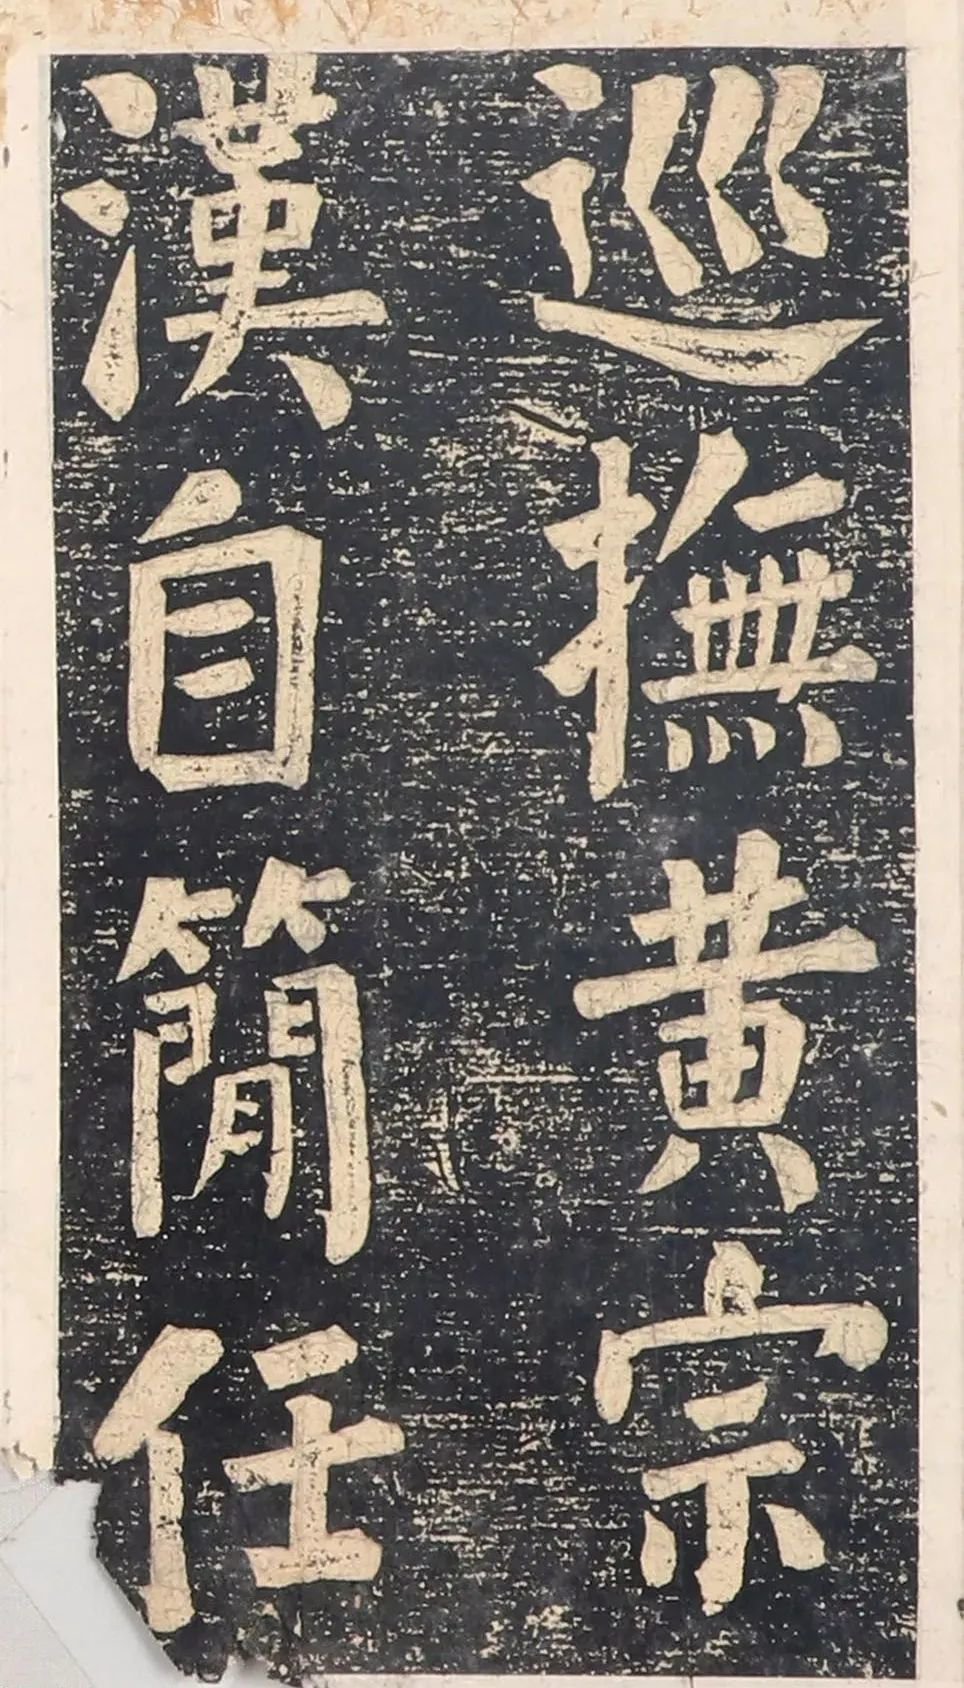 巡撫黄宗
漢自簡任